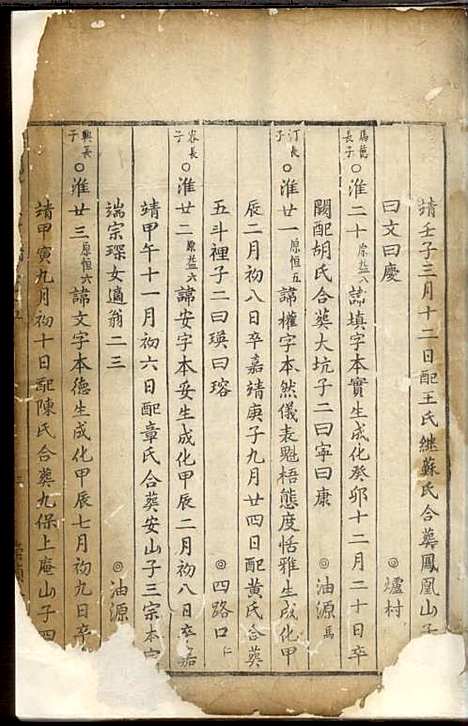 靖壬子三月十二日配王氏繼蘇氏合葬鳳凰山子
曰文曰慶 ◎爐村
長子 ○淮二十 原益八 諱填字本實生成化癸卯十二月二十日卒
闕配胡氏合葬大坑子二曰寧曰康 ◎油源 馬
汀長子 ○淮廿一 原恒五 諱權字本然儀表魁梧態度恬雅生成化甲
辰二月初八日卒嘉靖庚子九月廿四日配黃氏合葵
五斗裡子二曰瑛曰瑢 ◎四路口 仁
容長子 ○淮廿二 原益六 諱安字本妥生成化甲辰二月初八日卒嘉
靖甲午十一月初六日配章氏合葵安山子三宗本宗
端宗琛女適翁二三 ◎油源
興長子 ○淮廿三 原恒六 諱文字本德生成化甲辰七月初九日卒
靖甲寅九月初十日配陳氏合葵九保上庵山子四